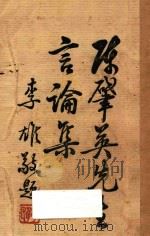 陈肇英先生
言論集
李雄敬題